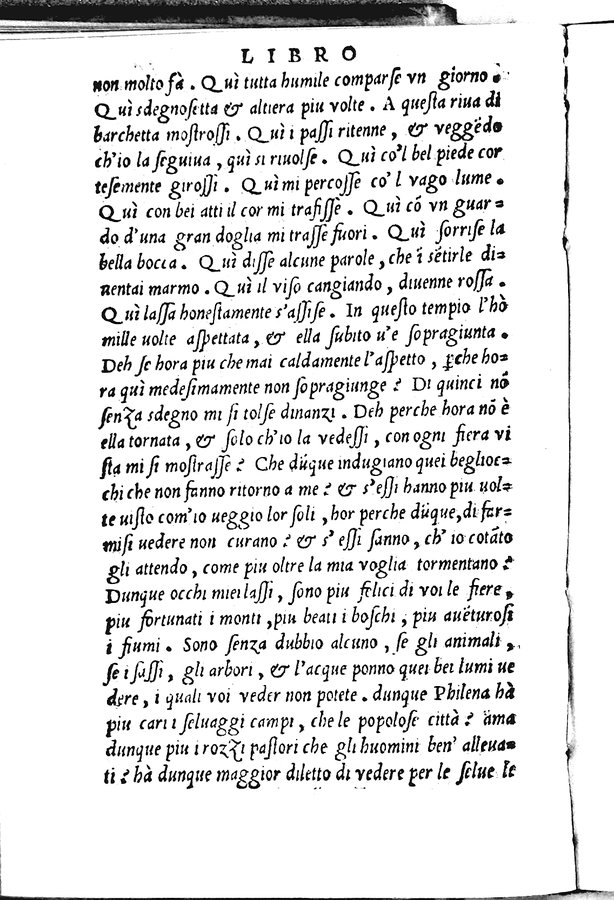 LIBRO
non molto fà . Quì tutta humile comparſe vn giorno .
Quì sdegnoſetta & altiera piu volte . A queſta riua di
barchetta moſtroſſi . Quì i paſſi ritenne , & veggēdo
ch'io la ſeguiua , quì si riuolſe . Quì co'l bel piede cor
teſemente giroſſi . Quì mi percoſſe co'l vago lume .
Quì con bei atti il cor mi trafiſſe . Quì cō vn guar=
do d'una gran doglia mi traſſe fuori . Quì ſorriſe la
bella bocca . Quì diſſe alcune parole , che ī sētirle di=
uentai marmo . Quì il viſo cangiando , diuenne roſſa .
Quì laſſa honeſtamente s'aſſiſe . In queſto tempio l'hò
mille uolte aſpettata , & ella ſubito u'e ſopragiunta .
Deh ſe hora piu che mai caldamente l'aſpetto , ꝑche ho=
ra quì medeſimamente non ſopragiunge ? Di quinci nō
ſenza sdegno mi ſi tolſe dinanzi . Deh perche hora nō è
ella tornata , & ſolo ch'io la vedeſſi , con ogni fiera vi
ſta mi ſi moſtraſſe ? Che dūque indugiano quei beglioc=
chi che non fanno ritorno a me ? & s'eſſi hanno piu uol=
te uiſto com'io ueggio lor ſoli , hor perche dūque, di far=
miſi uedere non curano ? & s'eſſi ſanno , ch'io cotāto
gli attendo , come piu oltre la mia voglia tormentano ?
Dunque occhi miei laſſi , ſono piu felici di voi le fiere,
piu fortunati i monti , piu beati i boſchi , piu auēturoſi
i fiumi . Sono ſenza dubbio alcuno , ſe gli animali ,
ſe i ſaſſi , gli arbori , & l'acque ponno quei bei lumi ue
dere , i quali voi veder non potete . dunque Philena hà
piu cari i ſeluaggi campi , che le popoloſe città ? āma
dunque piu i rozzi paſtori che gli huomini ben' alleua=
ti ? hà dunque maggior diletto di vedere per le ſelue le